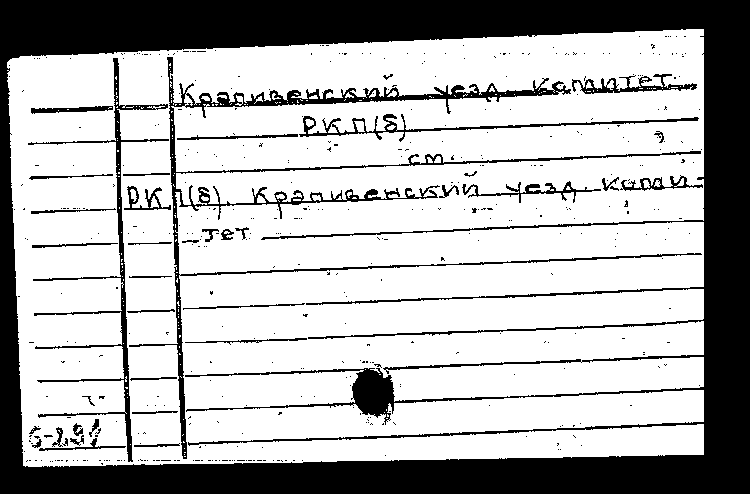 Крапивенский уезд. комитет
Р.К.П(б)
см.
Р.К.П(б). Крапивенский уезд. коми-
тет
6-291